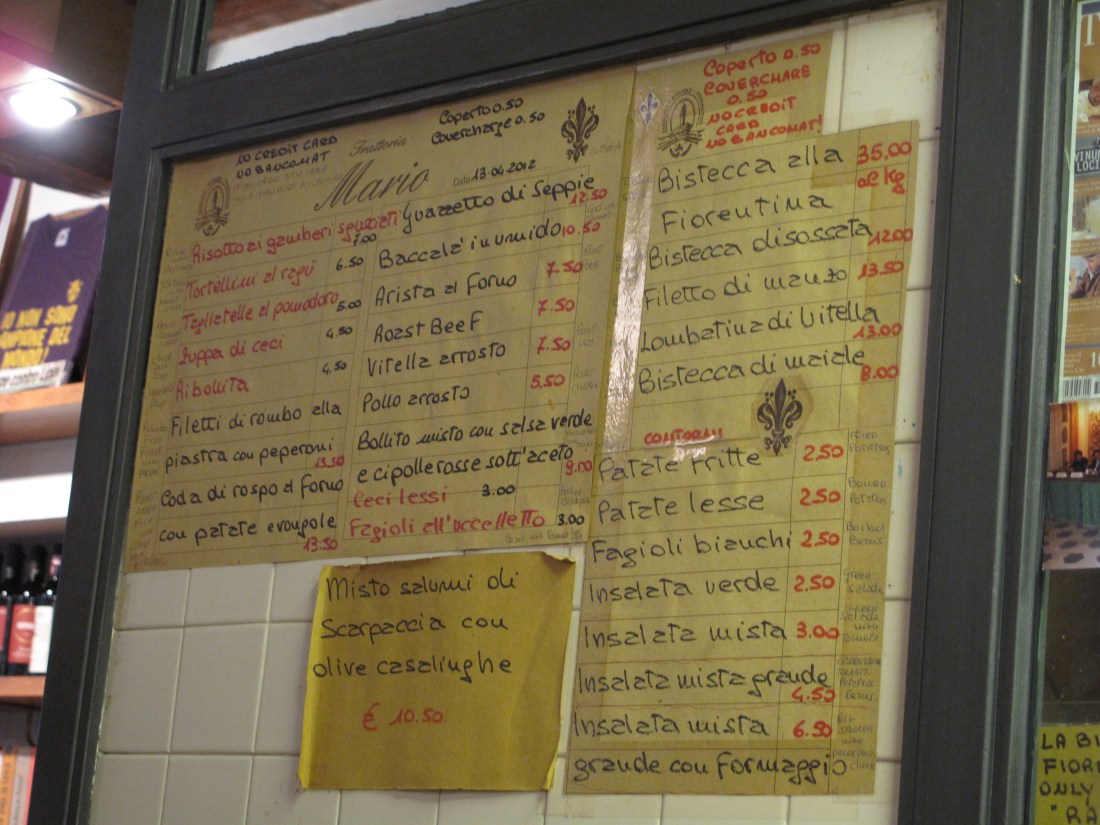 NO CREDIT CARD
NO BANCOMAT
Trattoria
Mario
Coperto 0.50
Covercharge 0.50
Data 13.04.2012
Risotto ai gamberi sgusciati
7.00
Tortellini al ragù 6.50
Tagliatelle al pomodoro 5.00
Zuppa di ceci 4.50
Ribollita 4.50
Filetti di rombo alla
piastra con peperoni 13.50
Coda di rospo al forno
con patate e rougole
13.50
Guazzetto di seppie
12.50
Baccalà in umido 10.50
Arista al forno 7.50
Roast Beef 7.50
Vitella arrosto 7.50
Pollo arrosto 5.50
Bollito misto con salsa verde
e cipolle rosse sott'aceto
9.00
Ceci lessi 3.00
Fagioli all'uccelletto 3.00
Misto salumi di
Scarpaccia con
olive casalinghe
€ 10.50
Coperto 0.50
COVERCHARE
0.50
NO CREDIT
CARD
NO BANCOMAT!
Bistecca alla 35,00
Fiorentina al kg
Bistecca disossata 12.00
Filetto di manzo 13.50
Lombatina di vitella
13.00
Bistecca di maiale
8.00
CONTORNI
Patate fritte 2.50 FRIED POTATOES
Patate lesse 2.50 Boiled Potatoes
Fagioli bianchi 2.50 Boiled Beans
Insalata verde 2.50 Green salade
Insalata mista 3.00
Insalata mista grande
4.50
Insalata mista 6.50
grande con formaggio
IO NON SONO
CAMPIONE DEL
MONDO!
VINUM
LOCI
LA BI
FIORE
ONLY
"RA